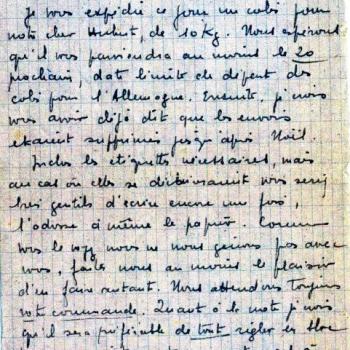 Je vous expédie ce jour un colis pour
notre cher Hubert, de 10 kg. Nous espérons
qu'il vous parviendra au moins le 20
prochain, date limite de départ des
colis pour l'Allemagne. Ensuite, je crois
vous avoir déjà dit que les envois
étaient supprimés jusqu'après Noël.
Inclus les étiquettes nécessaires, mais
au cas où elles se déchireraient vous seriez
très gentils d'écrire encore une fois,
l'adresse à même le papier. Comme
vous le voyez nous ne nous gênons pas avec
vous, faites nous au moins le plaisir
d'en faire autant. Nous attendons toujours
votre commande. Quant à la note je crois
qu'il sera préférable de tout régler en bloc